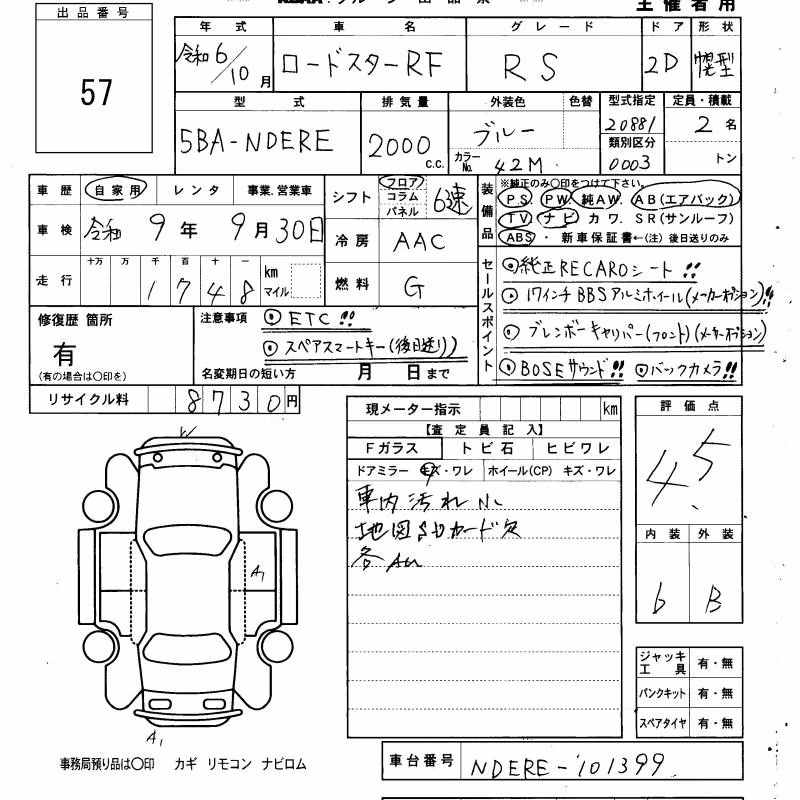 出品番号
57
主催者用
年式 車名 グレード ドア 形状
令和6/10月 ロードスターRF RS 2D 幌型
型式 排気量 外装色 色替 型式指定 定員・積載
5BA-NDERE 2000 c.c. ブルー 20881 2名
カラーNo. 42M 類別区分 0003 トン
車歴 自家用 レンタ 事業.営業車
車検 令和 9年 9月30日
走行 十万 万 千 百 十 一
1748 km マイル
シフト フロア コラム パネル 6速
冷房 AAC
燃料 G
装備品
※純正のみ〇印をつけて下さい。
PS PW 純AW. AB(エアバッグ)
TV ナビ カワ. SR(サンルーフ)
ABS・新車保証書←(注)後日送りのみ
セールスポイント
◎純正RECAROシート!!
◎17インチBBSアルミホイール(メーカーオプション)!!
◎ブレンボーキャリパー(フロント)(メーカーオプション)
◎BOSEサウンド!! ◎バックカメラ!!
修復歴 箇所
有
(有の場合は〇印を)
注意事項
◎ETC!!
◎スペアスマートキー(後日送り)
名変期日の短い方 月 日まで
リサイクル料 8730円
現メーター指示 km
【査定員記入】
Fガラス トビ石 ヒビワレ
ドアミラー キズ・ワレ ホイール(CP) キズ・ワレ
車内汚れ小
地図SDカード欠
各AU
評価点
4.5
内装 外装
6 B
ジャッキ工具 有・無
パンクキット 有・無
スペアタイヤ 有・無
W
A1
A1
事務局預り品は〇印 カギ リモコン ナビロム
車台番号 NDERE-101399